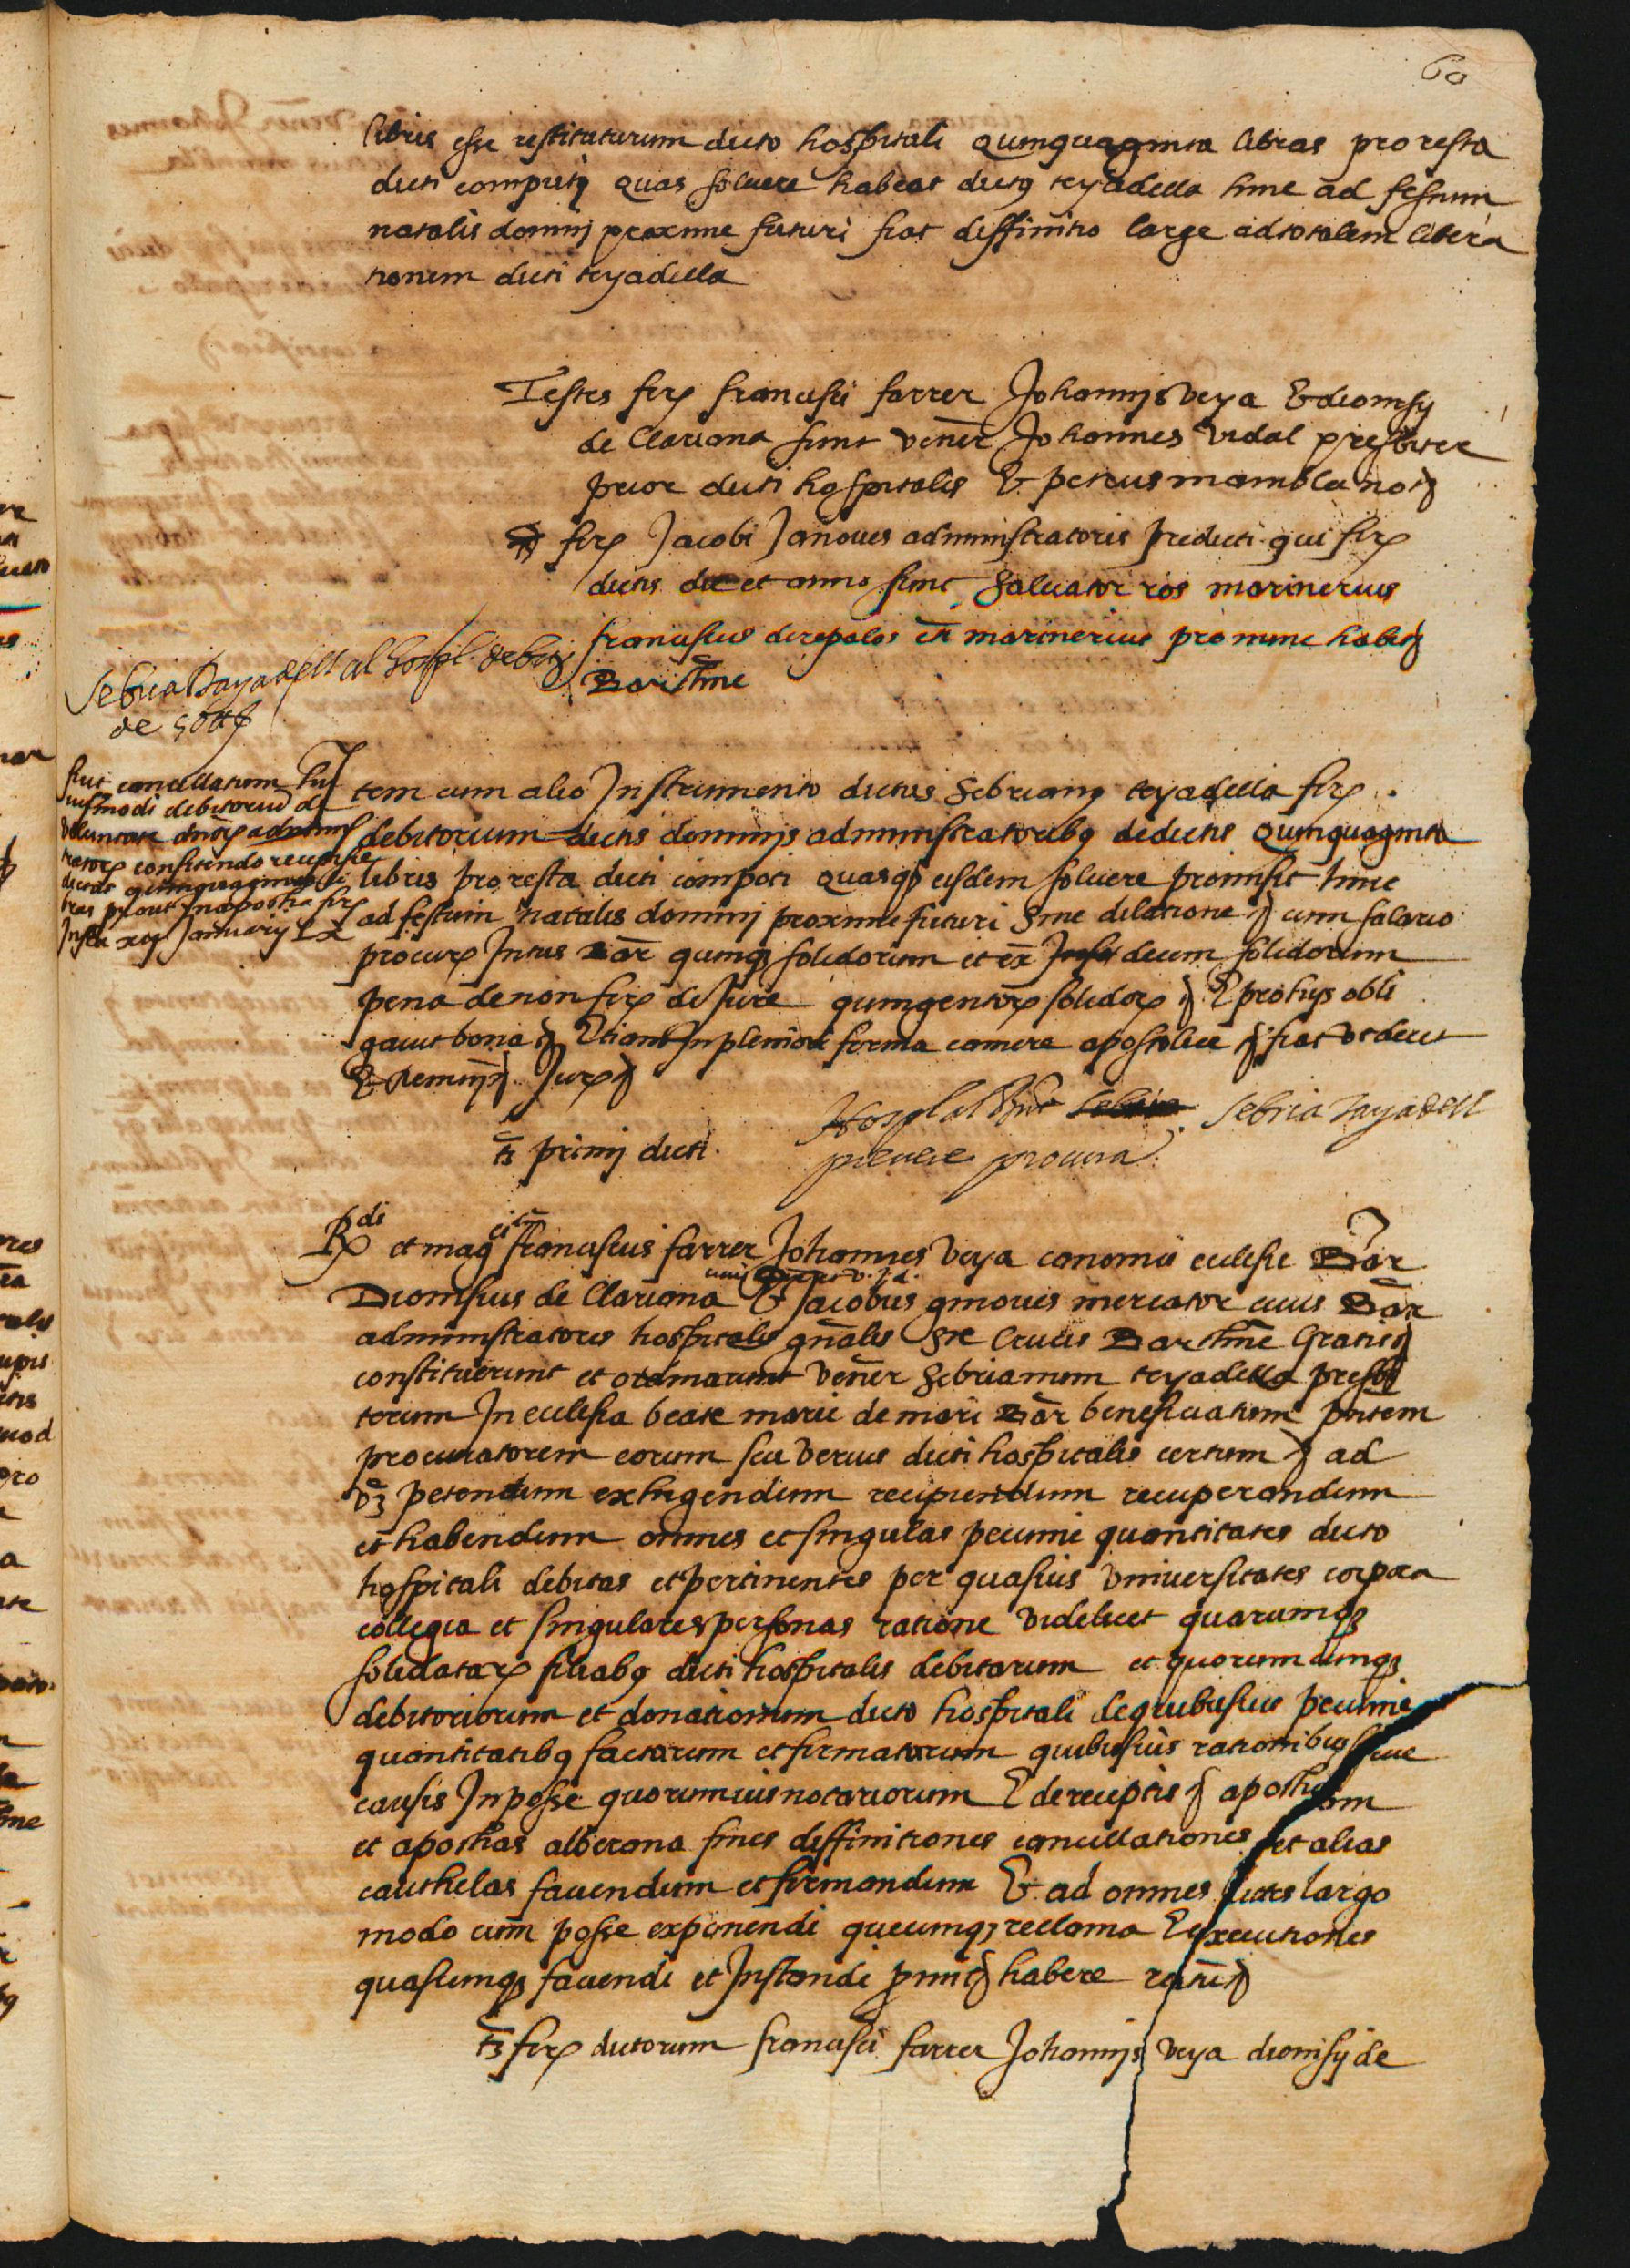 60
libris esse restituturum dicto hospitali quinquaginta libras pro resta
dicti computi quas soluere habeat dictus teyadella hinc ad festum
natalis domini proxime futuri fiat diffinitio large ad totalem libera
tionem dicti teyadella
Testes firme francisci farrer Johannis Veya & dionisij
de Clariana sunt vener Johannes Vidal presbiter
prior dicti hospitalis & petrus mambla not
firme Jacobi Janoues administratoris predicti qui firme
dictis die et anno sunt Saluator ros marinerius
franciscus de repalos etiam marinerius pro nunc habit
Barchne
Sebria Tayadell al hospl debit
de 50 ll
fuit cancellatum hu
iusmodi debitorium de
voluntate dnorum adminis
tratorum confitendo recepisse
dictas quinquaginta li
bras prout in apocha firme
Infra xiij Januarij Lx
Item cum alio Instrumento dictus Sebrianus teyadella firme
debitorium dictis dominis administratoribus de dictis quinquaginta
libris pro resta dicti compoti quasquidem eisdem soluere promisit hinc
ad festum natalis domini proxime futuri sine dilatione & cum salario
procure Intus Bar quinque solidorum et extra decem solidorum
pena de non firme de Jure quingentorum solidorum & & pro hijs obli
gauit bona & Etiam In pleniori forma camere apostolice & fiat vt decet
& Remitij & Jure &
ts primi dicti
Hospl al dit Sebria Tayadell
preuere procura
Rdi et magci franciscus farrer Johannes Veya canonici ecclesie Bar
Dionisius de Clariana & Jacobus gmoues mercator ciuis Bar
administratores hospitalis gnalis ste Crucis Barchne Gratis
constituerunt et ordinarunt vener Sebrianum teyadella presbi
terum In ecclesia beate marie de mari Bar beneficiatum pntem
procuratorem eorum seu verius dicti hospitalis certum & ad
vz petendum exhigendum recipiendum recuperandum
et habendum omnes et singulas pecunie quantitates dicto
hospitali debitas et pertinentes per quasuis vniuersitates corpora
collegia et singulares personas ratione videlicet quarumqz
solidatarum filiabus dicti hospitalis debitarum et quorumcumqz
debitoriorum et donationum dicto hospitali de quibusuis pecunie
quantitatibus factarum et firmatarum quibusuis rationibus siue
causis In posse quorumuis notariorum E de receptis & apocham
et apochas albarana fines diffinitiones cancellationes et alias
cauthelas faciendum et firmandum & ad omnes lites largo
modo cum posse exponendi quecumqz reclama E executiones
quascumqz faciendi et Instandi promit & habere ratum &
ts firme dictorum francisci farrer Johannis Veya dionisij de